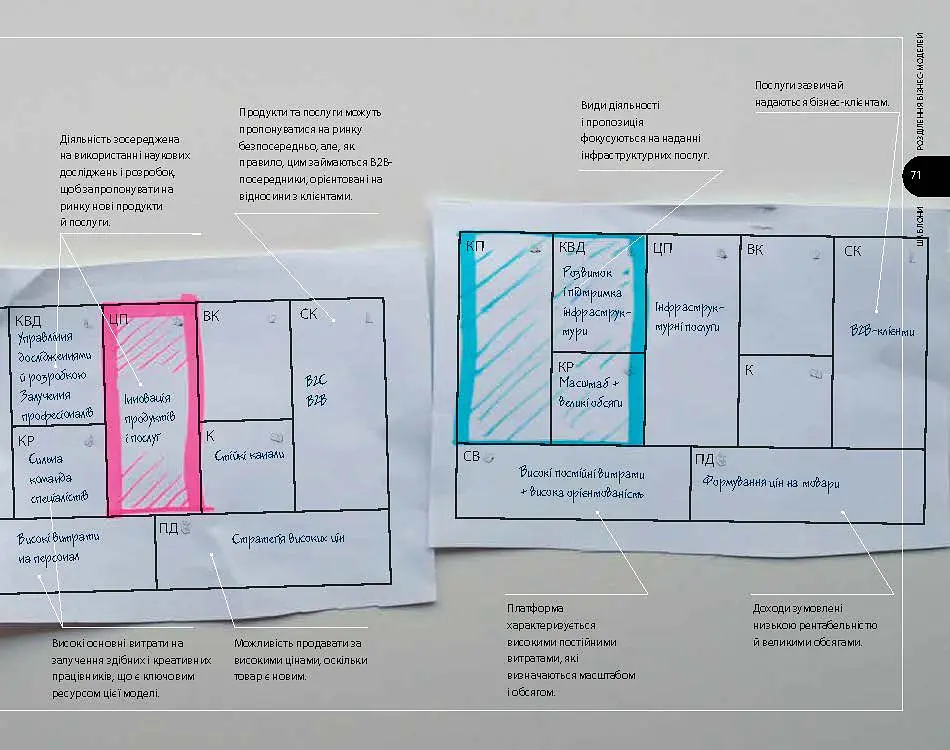 РОЗДІЛЕННЯ БІЗНЕС-МОДЕЛЕЙ
71
ШАБЛОНИ
Діяльність зосереджена
на використанні наукових
досліджень і розробок,
щоб запропонувати на
ринку нові продукти
й послуги.
Продукти та послуги можуть
пропонуватися на ринку
безпосередньо, але, як
правило, цим займаються B2B-
посередники, орієнтовані на
відносини з клієнтами.
Види діяльності
і пропозиція
фокусуються на наданні
інфраструктурних послуг.
Послуги зазвичай
надаються бізнес-клієнтам.
КВД
Управління
дослідженнями
й розробкою
Залучення
професіоналів
КР
Сильна
команда
спеціалістів
ЦП
Інновація
продуктів
і послуг
ВК
К
Стійкі канали
СК
B2C
B2B
Високі витрати
на персонал
ПД
Стратегія високих цін
КП
КВД
Розвиток
і підтримка
інфраструк-
тури
КР
Масштаб +
великі обсяги
ЦП
Інфраструк-
турні послуги
ВК
К
СК
B2B-клієнти
СВ
Високі постійні витрати
+ висока орієнтованість
ПД
Формування цін на товари
Високі основні витрати на
залучення здібних і креативних
працівників, що є ключовим
ресурсом цієї моделі.
Можливість продавати за
високими цінами, оскільки
товар є новим.
Платформа
характеризується
високими постійними
витратами, які
визначаються масштабом
і обсягом.
Доходи зумовлені
низькою рентабельністю
й великими обсягами.